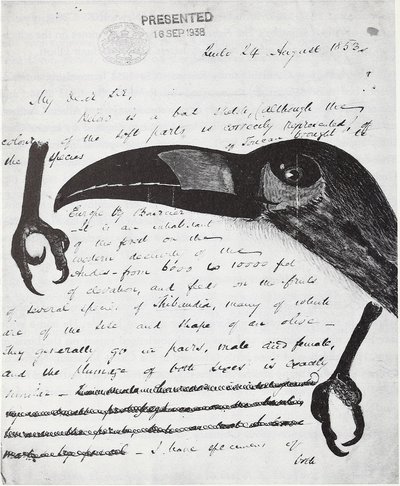 PRESENTED
16 SEP 1938
Quito 24 August 1853
My Dear Sir,
Below is a bad sketch, (although the
colouring of the soft parts, is correctly represented), of
the species of Toucan brought to
Europe By Bourcier
– It is an inhabitant
of the forest on the
western declivity of the
Andes – from 6000 to 10000 feet
of elevation, and feeds on the fruits
of several species of Thibaudia, many of which
are of the size and shape of an olive –
They generally go in pairs, male and female,
and the plumage of both sexes is exactly
similar –
– I have specimens of
both